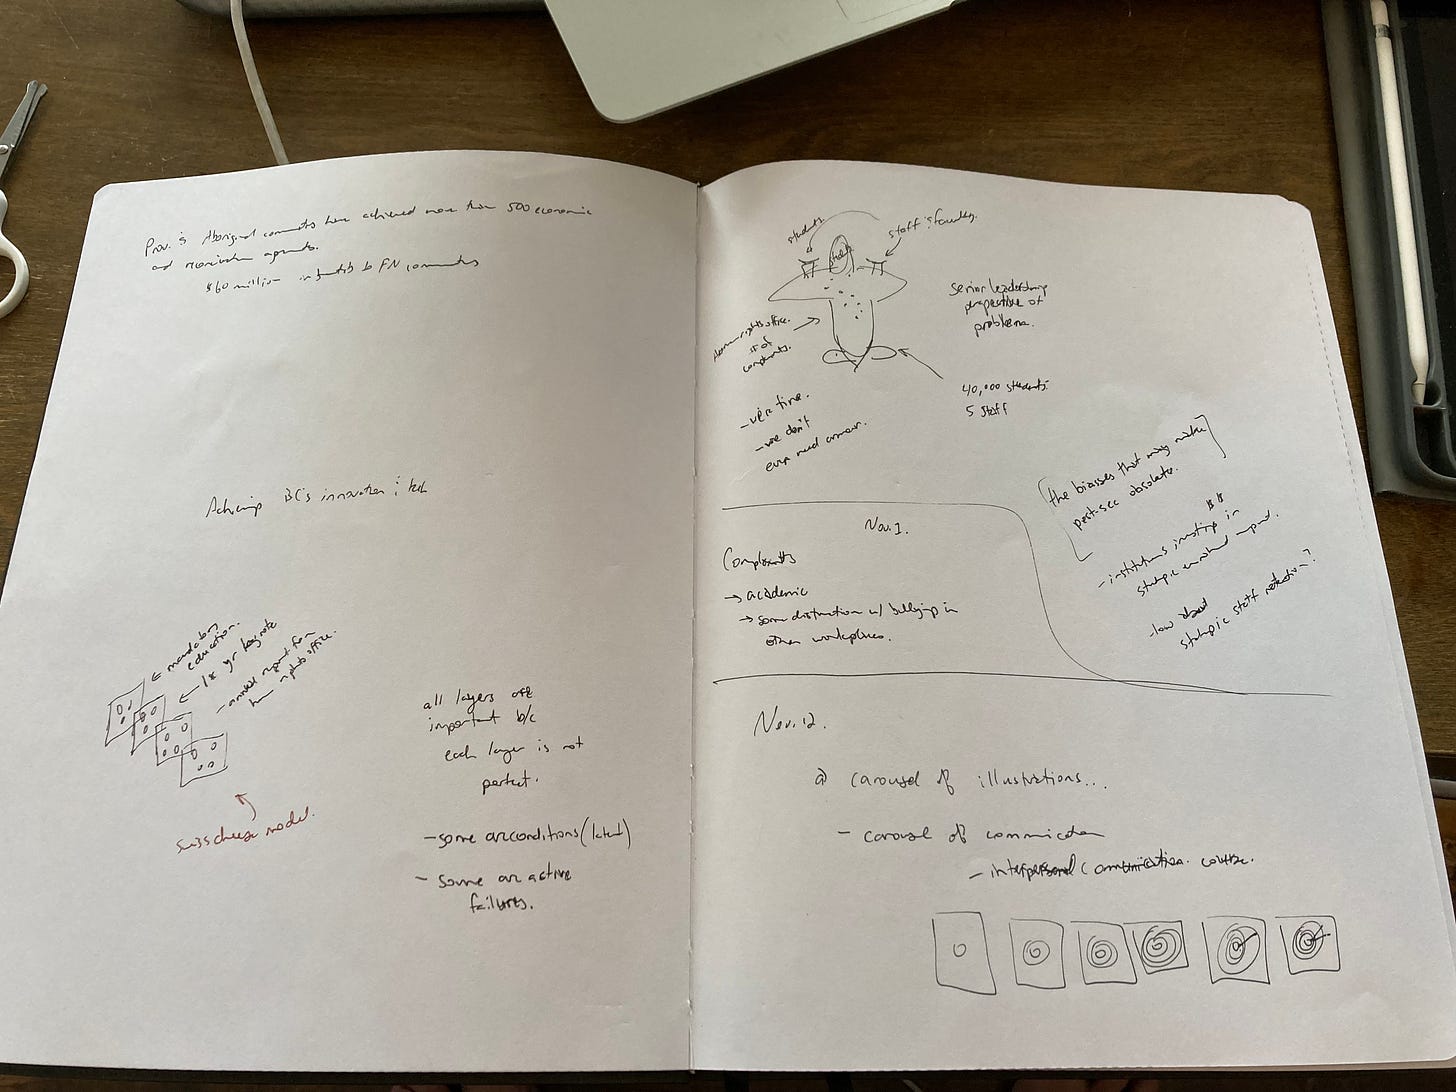 Prov. & Aboriginal communities have achieved more than 500 economic
and reconciliation agreements.
$60 million in benefits to FN communities
Achieving BC's innovation & tech
← mandatory
education.
← 1st yr keynote
- annual report from
human rights office.
Swiss cheese model.
all layers are
important b/c
each layer is not
perfect.
- some are conditions (latent)
- some are active
failures.
students
staff & faculty.
human rights office.
# of
complaints.
senior leadership
perspective of
problems.
40,000 students.
5 staff
- we're fine.
- we don't
even need armour.
the biases that may make
post-sec obsolete.
- institutions investing $$ in
- low
staff retention?
Nov. 1.
Complaints
→ academic
→ some distinction w/ bullying in
other workplaces.
Nov. 12.
a carousel of illustrations...
- carousel of communication
- interpersonal communication course.